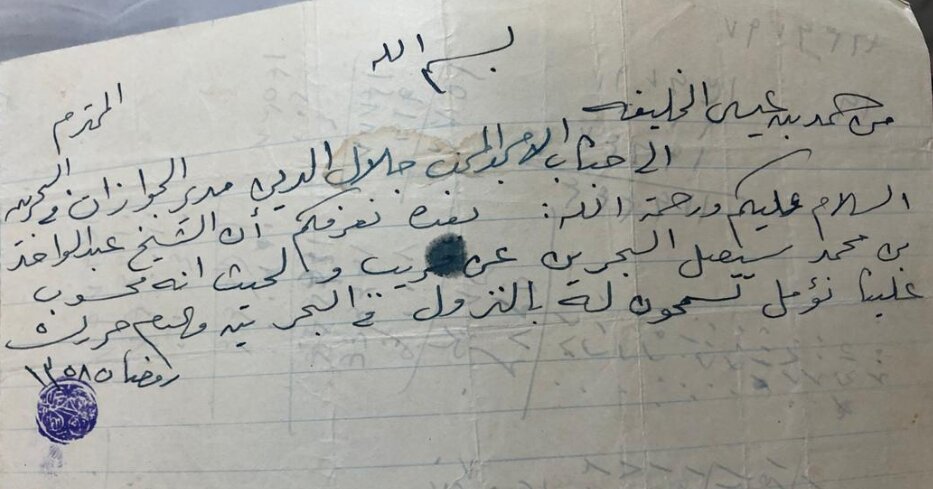 بسم الله
من حمد بن عيسى الخليفه
المحترم
الى جناب الامجد المحب جلال الدين مدير الجوازات في البحرين
السلام عليكم ورحمة الله: بعده نعرفكم أن الشيخ عبدالواحد
بن محمد سيصل البحرين عن قريب ولحيث انه محسوب
علينا نؤمل تسمحون له بالنزول في البحرين
رمضان ١٣٥٨